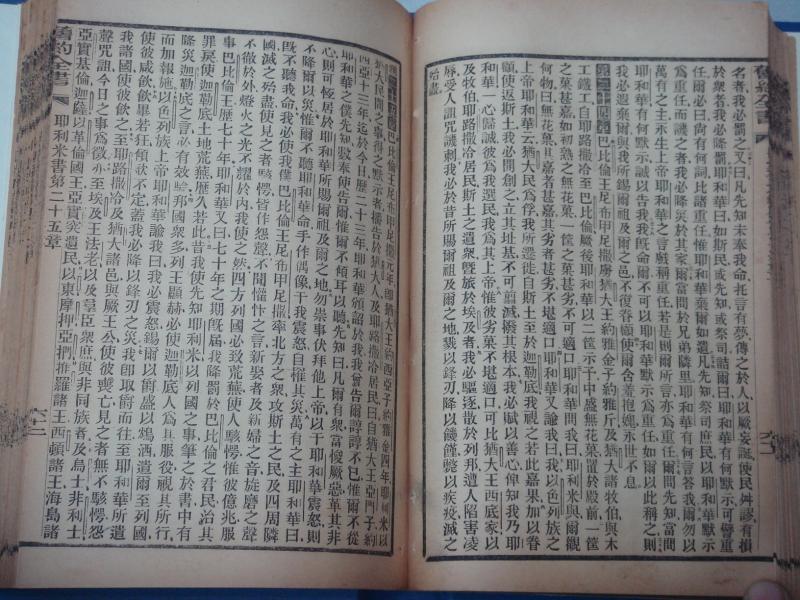 舊約全書
名者、我必罰之、又曰、凡先知未奉我命、托言有夢、傳之於人、以厥妄誕、使民舛謬、有損
於衆者、我必降罰、耶和華曰、如斯民或先知、或祭司、詰爾曰、耶和華有何默示、可警重
爾必曰、尚有何詞、比諸重任、惟耶和華棄爾如遺、凡先知祭司庶民、以耶和華默示
爲重任、而譏之者、我必降災於其家、爾當問於兄弟隣里、耶和華有何言、答我、爾勿以
萬有之主永生上帝耶和華之言、戲稱重任、若是則爾所言亦爲重任、爾問先知、當問
耶和華有何默示、誠以告我、我旣命爾、不可以耶和華默示、戲稱重任、如爾以此稱之、則
我必遐棄爾、與我所錫爾祖及爾之邑、不復眷顧、使爾含羞抱愧、永世不息、
第二十四章 巴比倫王尼布甲尼撒、虜猶大王約雅金子約雅斤、及猶大諸牧伯、與木
工鐵工、自耶路撒冷至巴比倫、厥後耶和華以二筐示予、中盛無花菓、置於殿前、一筐
之菓甚嘉、如初熟之無花菓、一筐之菓甚劣、不可適口、耶和華問我曰、耶利米與、爾觀
何物、曰、無花菓、其嘉者甚嘉、其劣者甚劣、不堪適口、耶和華又諭我曰、我以色列族之
上帝耶和華云、猶大民人爲俘、我所遷徙、自斯土至於迦勒底、我視之若此嘉果、加以眷
顧、使反斯土、我必開創之、立其址基、不可翦滅、撥其根本、我必賦以善心、俾知我乃耶
和華、一心歸誠、彼爲我選民、我爲其上帝、惟彼劣菓不堪適口、可比猶大王西底家、以
及牧伯、耶路撒冷居民、斯土之遺衆、曁旅於埃及者、我必驅逐、散於列邦、遭人陷害、凌
辱、受人詛咒譏刺、我必於昔所賜爾祖及爾之地、戮以鋒刃、降以饑饉、斃以疾疫、滅之
殆盡、
第二十五章 巴比倫王尼布甲尼撒元年、卽猶大王約西亞子約雅金四年、耶利米以
猶大民間之事、得之默示者、播告於猶大人、及耶路撒冷居民曰、自猶大王亞門子約
西亞十三年、迄於今日、歷二十三年、耶和華頒詔於我、我曾告爾、諄諄不已、惟爾不從、
耶和華之僕先知、數奉使告爾、惟爾不傾耳以聽、先知曰、凡爾有衆、當悛厥惡、革其非
心、則可恆居於耶和華所賜爾祖及爾之地、勿崇事伏拜他上帝、以干耶和華震怒、則
不降爾以災、惟爾不聽耶和華命、手作偶像、干我震怒、自罹其災、萬有之主耶和華曰、
旣不聽我命、我必使我僕巴比倫王尼布甲尼撒、率北方之衆、攻斯土之民、及四周隣
國、滅之殆盡、使見之者駭愕、皆作怨聲、不聞懽忭之言、新娶者及新婦之音、旋磨之聲、
不燃於外、燈火之光、不耀於內、我使之然、四方列國、必致荒蕪、使人駭愕、惟彼億兆、服
事巴比倫王、歷七十年、耶和華又曰、七十年之期旣屆、我降罰於巴比倫之君民、治其
罪戾、使迦勒底土地荒蕪、歷久若此、昔我使先知耶利米、以列國之事筆之於書、中有
降災迦勒底之言、必有效驗、邦國衆多、列王顯赫、必使迦勒底人爲其服役、視其所行、
而加報施、以色列族上帝耶和華諭我曰、我必震怒、錫爾以爵、盛以鴆酒、遺爾至列國、
使彼咸飲、飲畢若狂、傾欹不定、蓋我必降以鋒刃之災、我卽取爵而往、至耶和華所遣
我諸國、使彼飲之、至耶路撒冷及猶大諸邑、與厥王公、使彼喪亡、見之者無不駭愕、怨
聲咒詛、今日之事爲徵、亦至埃及王法老、以及羣臣衆庶、與非同族者、及烏士、非利士、
亞實基倫、迦薩、以革倫國王、亞實突遺民、以東、摩押、亞捫、推羅諸王、西頓諸王、海島諸
舊約全書
耶利米書第二十五章
六十二